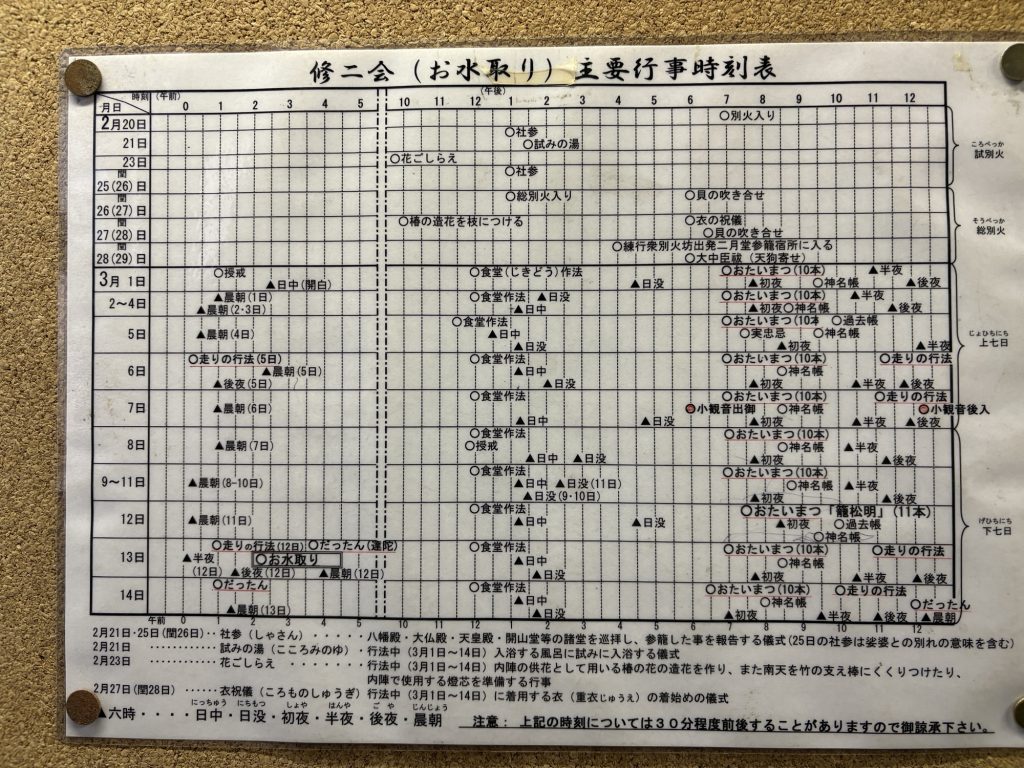 修二会（お水取り）主要行事時刻表
時刻 (午前) (午後)
月日 0 1 2 3 4 5 10 11 12 1 2 3 4 5 6 7 8 9 10 11 12
2月20日 ○別火入り
○社参
21日 ○試みの湯
23日 ○花ごしらえ
閏 25(26)日 ○社参
閏 26(27)日 ○総別火入り ○貝の吹き合せ
閏 27(28)日 ○椿の造花を枝につける ○衣の祝儀
○貝の吹き合せ
閏 28(29)日 ○練行衆別火坊出発二月堂参籠宿所に入る
○大中臣祓（天狗寄せ）
ころべっか
試別火
そうべっか
総別火
3月 1日 ○授戒 ○食堂(じきどう)作法 ○おたいまつ(10本) ▲半夜
▲日中(開白) ▲日没 ▲初夜 ○神名帳 ▲後夜
2～4日 ▲晨朝(1日) ○食堂作法 ▲日没 ○おたいまつ(10本) ▲半夜
▲晨朝(2・3日) ▲日中 ▲初夜○神名帳 ▲後夜
5日 ○食堂作法 ○おたいまつ(10本 ○過去帳
▲晨朝(4日) ▲日中 ○実忠忌 ○神名帳
▲日没 ▲初夜 ▲半夜
6日 ○走りの行法(5日) ○食堂作法 ○おたいまつ(10本) ○走りの行法
▲晨朝(5日) ▲日中 ○神名帳
▲後夜(5日) ▲日没 ▲初夜 ▲半夜 ▲後夜
7日 ○食堂作法 ○おたいまつ(10本) ○走りの行法
▲晨朝(6日) ○小観音出御 ○神名帳 ○小観音後入
▲日中 ▲日没 ▲初夜 ▲半夜 ▲後夜
じょひちにち
上七日
8日 ○食堂作法 ○おたいまつ(10本)
▲晨朝(7日) ○授戒 ○神名帳 ▲半夜
▲日中 ▲日没 ▲初夜 ▲後夜
9～11日 ○食堂作法 ○おたいまつ(10本)
▲晨朝(8-10日) ▲日中 ▲日没(11日) ○神名帳 ▲半夜
▲日没(9・10日) ▲初夜 ▲後夜
12日 ○食堂作法 ○おたいまつ「籠松明」(11本)
▲晨朝(11日) ▲日中 ▲日没 ▲初夜 ○過去帳
○神名帳
13日 ○走りの行法(12日) ○だったん(達陀) ○食堂作法 ○おたいまつ(10本) ○走りの行法
▲半夜 ○お水取り ▲日中 ○神名帳
(12日) ▲後夜(12日) ▲晨朝(12日) ▲日没 ▲初夜 ▲半夜 ▲後夜
14日 ○だったん ○食堂作法 ○おたいまつ(10本) ○走りの行法
▲日中 ○神名帳 ○だったん
▲晨朝(13日) ▲日没 ▲初夜 ▲半夜 ▲後夜 ▲晨朝
げひちにち
下七日
午前 0 1 2 3 4 5 10 11 12 1 2 3 4 5 6 7 8 9 10 11 12
2月21日・25日(閏26日)・・社参（しゃさん）・・・・・・八幡殿・大仏殿・天皇殿・開山堂等の諸堂を巡拝し、参籠した事を報告する儀式(25日の社参は娑婆との別れの意味を含む)
2月21日 ・・・・・・試みの湯（こころみのゆ）・行法中（3月1日～14日）入浴する風呂に試みに入浴する儀式
2月23日 ・・・・・・花ごしらえ ・・・・・・・行法中（3月1日～14日）内陣の供花として用いる椿の花の造花を作り、また南天を竹の支え棒にくくりつけたり、
内陣で使用する燈芯を準備する行事
2月27日(閏28日) ・・・・・・衣祝儀（ころものしゅうぎ）行法中（3月1日～14日）に着用する衣（重衣じゅうえ）の着始めの儀式
にっちゅう にちもつ しょや はんや ごや じんじょう
▲六時・・・・日中・日没・初夜・半夜・後夜・晨朝
注意： 上記の時刻については３０分程度前後することがありますので御諒承下さい。